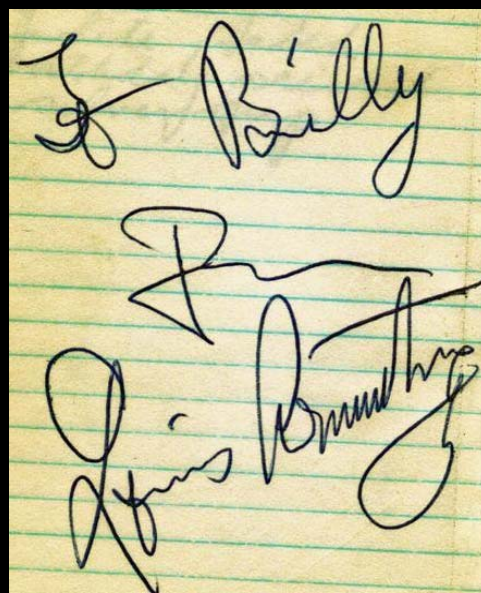 To Billy
From
Louis Armstrong